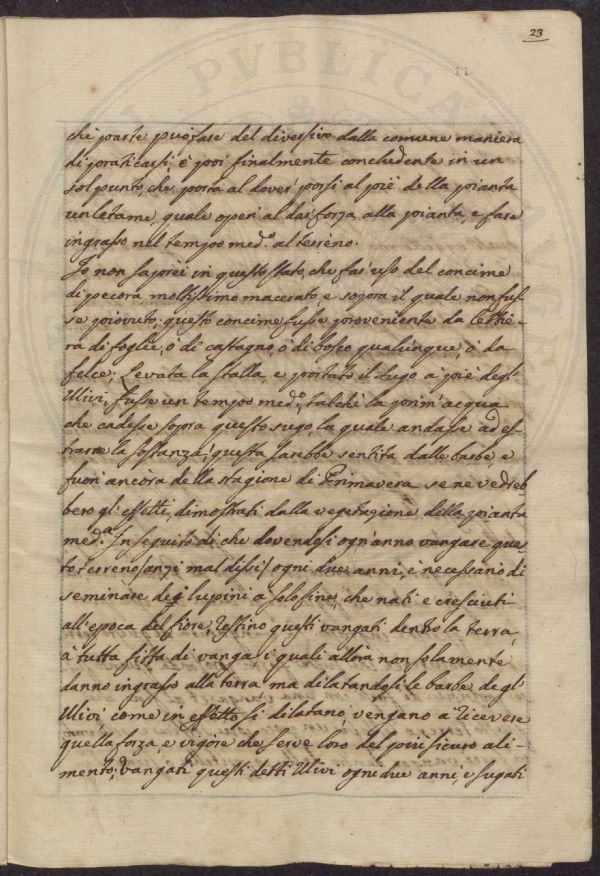 23
11
PVBLICA
chè parte può fare del diversivo dalla comune maniera
di praticarsi, è poi finalmente concludente in un
sol punto, che porta al dover porsi al piè della pianta
un letame, quale operi al dar forza alla pianta, e fare
ingrasso nel tempo med.º al terreno.
Io non saprei in questo stato, che far uso del concime
di pecora moltissimo macerato, e sopra il quale non fus-
se piovuto; questo concime fusse proveniente da lettie-
ra di foglie, ò di castagno, ò di bosco qualunque, ò da
felce; Levata la stalla, e portato il sugo à piè degl'
Ulivi, fusse un tempo med.º, talchè la prim'acqua
che cadesse sopra questo sugo, la quale andasse ad es-
trarne la sostanza; questa sarebbe sentita dalle barbe, e
fuori ancora della stagione di Primavera se ne vedreb-
bero gl'effetti, dimostrati dalla vegetazione della pianta
med.ª In seguito di che dovendosi ogn'anno vangare ques-
to terreno (anzi mal dissi) ogni due anni, è necessario di
seminare de lupini à solo fine, che nati e cresciuti
all'epoca del fiore, restino questi vangati dentro la terra,
à tutta fitta di vanga i quali allora non solamente
danno ingrasso alla terra, ma dilatandosi le barbe degl'
Ulivi come in effetto si dilatano, vengano a ricevere
quella forza, e vigore che serve loro del più sicuro ali-
mento; vangati questi detti Ulivi ogni due anni, e sugati